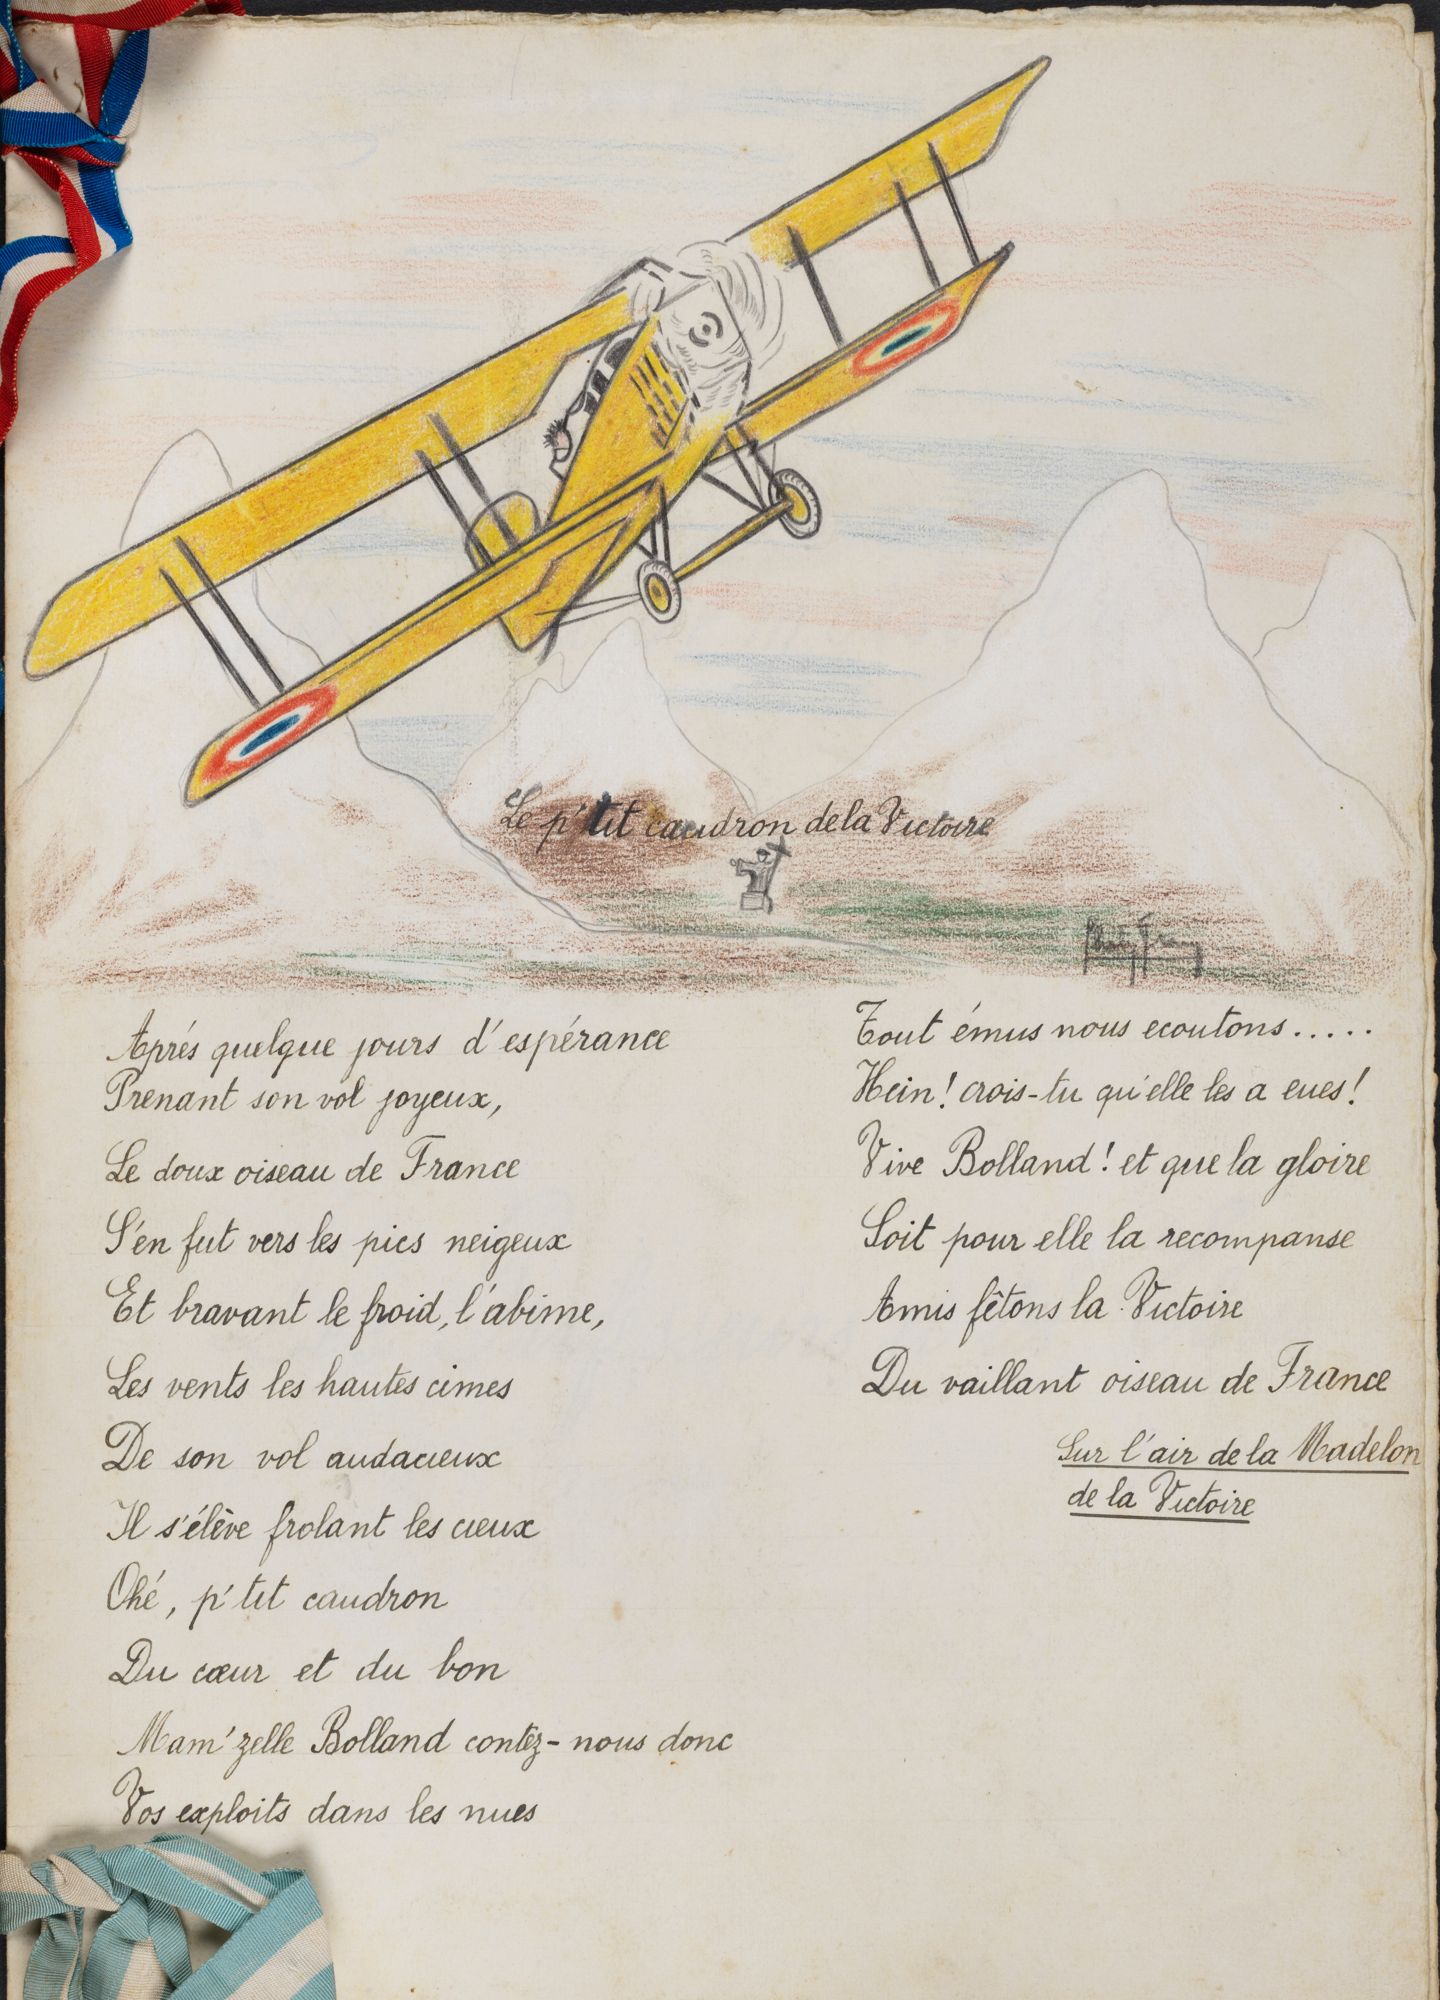 Le p'tit caudron de la Victoire
Aprés quelque jours d'espérance
Prenant son vol joyeux,
Le doux oiseau de France
S'en fut vers les pics neigeux
Et bravant le froid, l'abime,
Les vents les hautes cimes
De son vol audacieux
Il s'élève frolant les cieux
Ohé, p'tit caudron
Du cœur et du bon
Mam'zelle Bolland contez-nous donc
Vos exploits dans les nues
Tout émus nous ecoutons.....
Hein! crois-tu qu'elle les a eues!
Vive Bolland! et que la gloire
Soit pour elle la recompanse
Amis fêtons la Victoire
Du vaillant oiseau de France
Sur l'air de la Madelon
de la Victoire